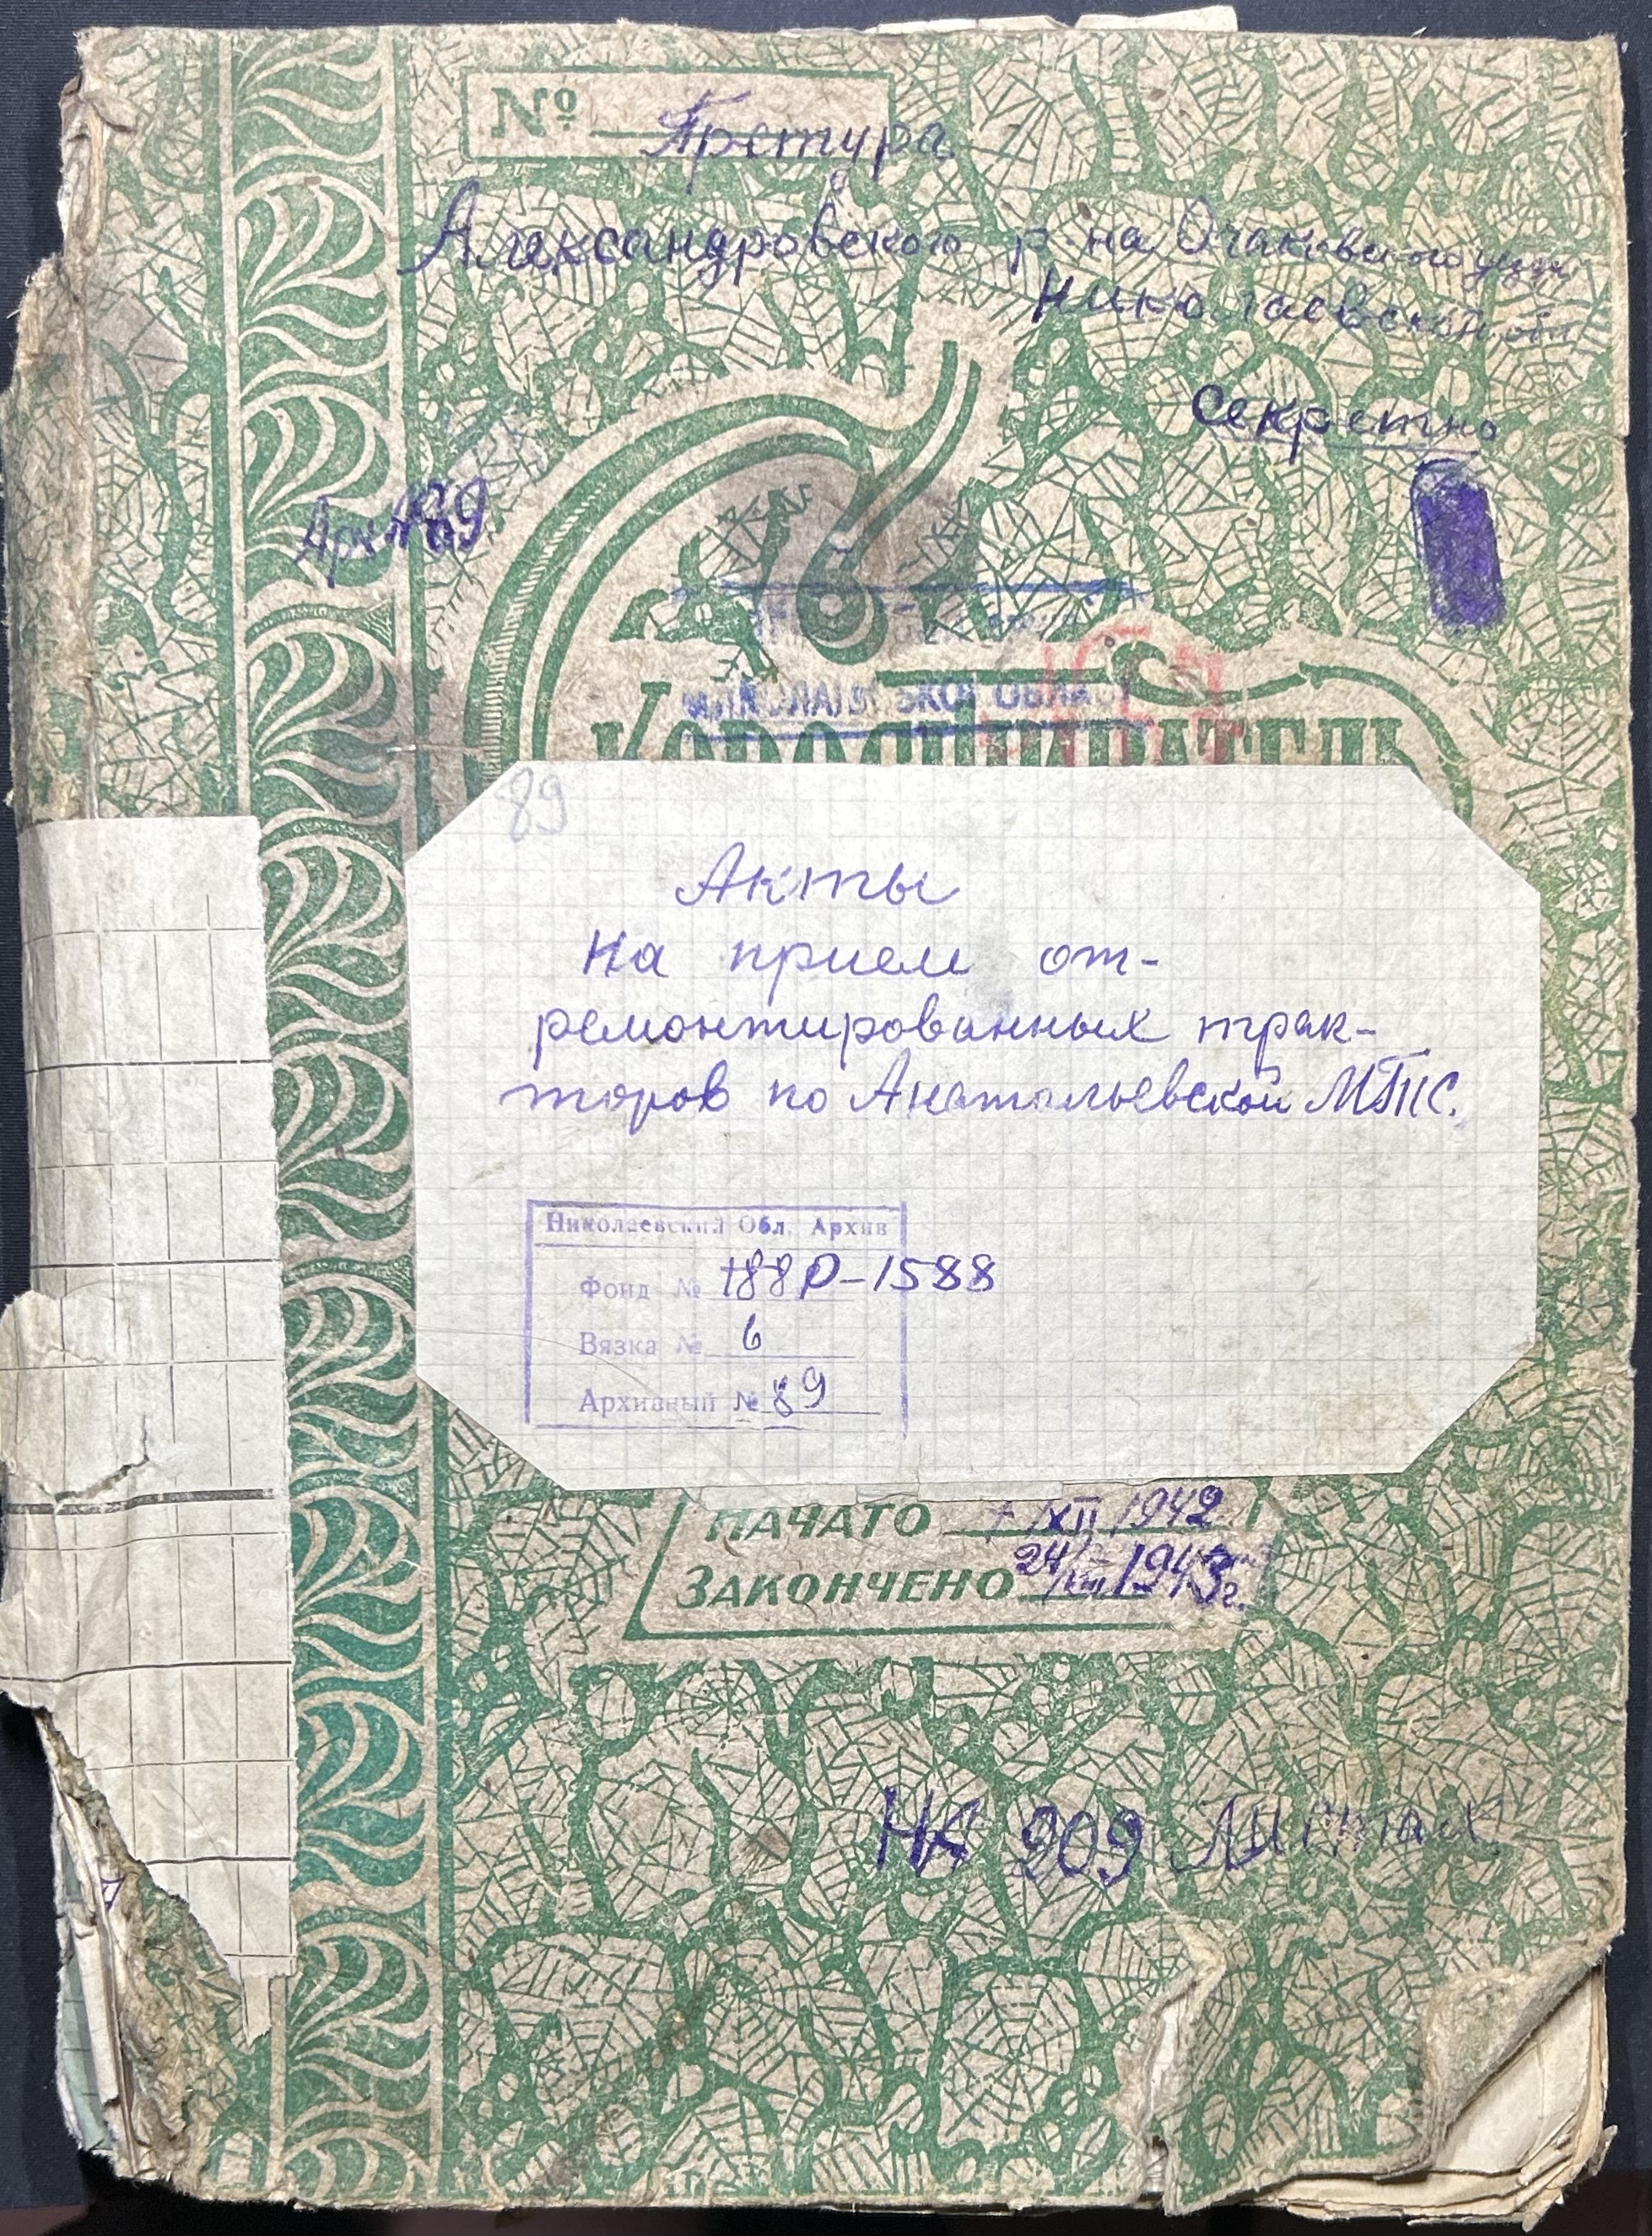 № Претура
Александровского р-на Очаковского уезда
Николаевской обл
Секретно
Арх №89
МИКОЛАЇВСЬКОЇ ОБЛАСТ
89
Акты
на прием от-
ремонтированных трак-
торов по Анатольевской МТПС.
Николаевский Обл. Архив
Фонд № 188 Р-1588
Вязка № 6
Архивный № 89
НАЧАТО 1 XII 1942
ЗАКОНЧЕНО 24/ 1943г.
НА 209 Листах